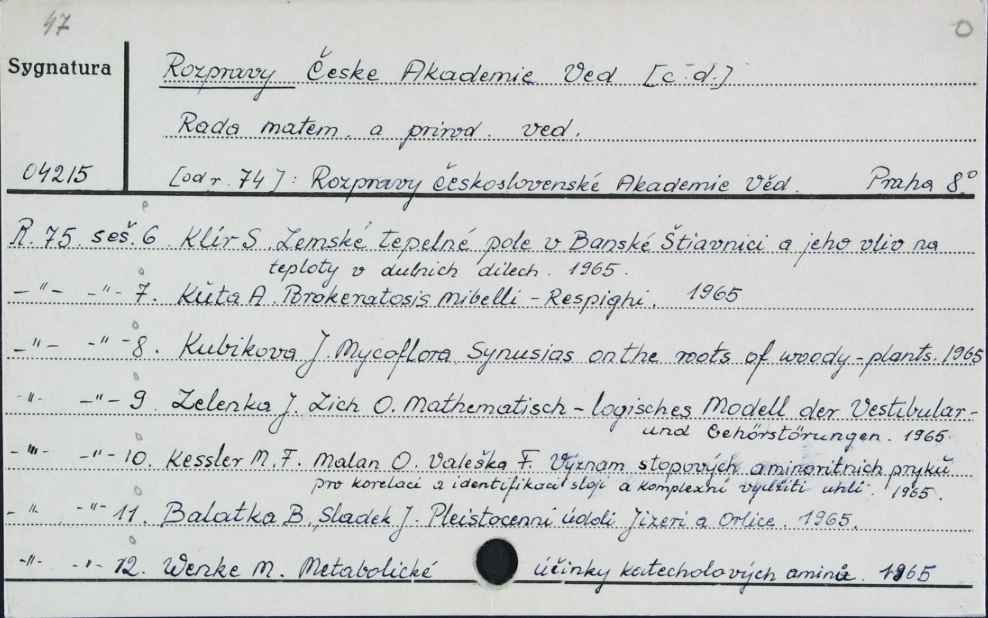 47
O
Sygnatura
Rozpravy České Akademie Ved [c. d.]
Rada matem. a prirod. ved.
04215
[od r. 74]: Rozpravy Československé Akademie Věd. Praha 8.°
R. 75 seš. 6 Klír S Zemské tepelné pole v Banské Štiavnici a jeho vliv na
teploty v dulnich dilech. 1965.
-"- -"- 7. Kůta A. Porokeratosis Mibelli - Respighi. 1965
-"- -"- 8. Kubikova J. Mycoflora Synusias on the roots of woody-plants. 1965
-"- -"- 9 Zelenka J. Zich O. Mathematisch-logisches Modell der Vestibular-
und Gehörstörungen. 1965.
-"- -"- 10. Kessler M. F. Malan O. Valeška F. Význam stopových a minoritnich prvků
pro korelaci a identifikaci slojí a komplexní využití uhlí. 1965.
-" -"- 11. Balatka B, Sladek J. Pleistocenni údoli Jizeri a Orlice. 1965.
-"- -"- 12. Wenke M. Metabolické účinky katecholových aminů. 1965